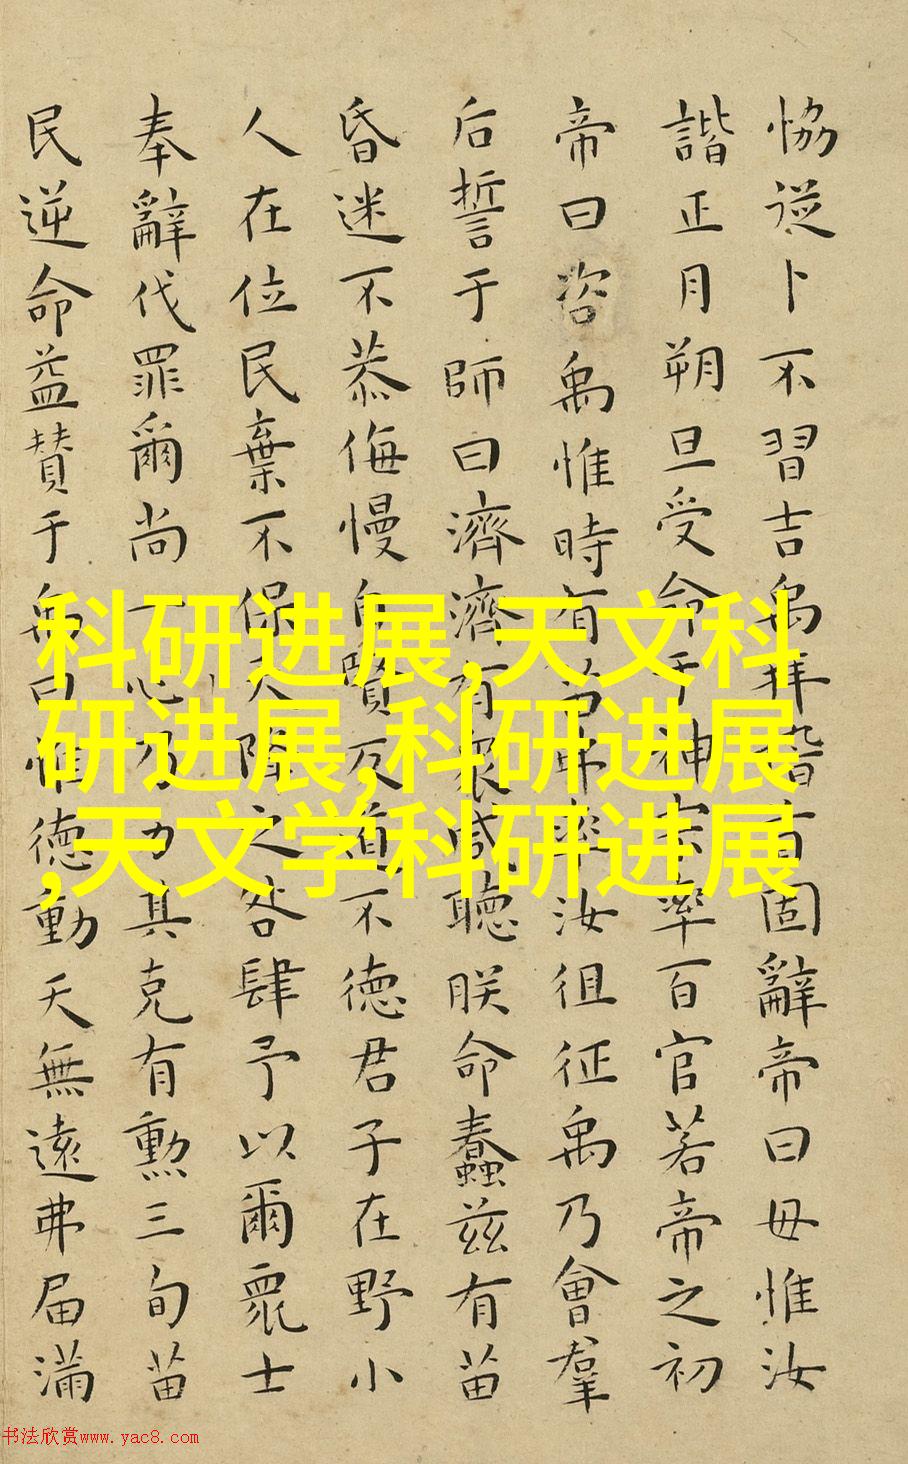 恊從卜不習吉禹拜稽首固辭帝曰毋惟汝
諧正月朔旦受命于神宗率百官若帝之初
帝曰咨禹惟時有苗弗率汝徂征禹乃會羣
后誓于師曰濟濟有衆咸聽朕命蠢茲有苗
昏迷不恭侮慢自賢反道不德君子在野小
人在位民棄不保天降之咎肆予以爾衆士
奉辭伐罪爾尚一心乃力其克有勲三旬苗
民逆命益贊于禹曰惟德動天無遠弗届滿
科研进展,天文科
研进展,科研进展
,天文学科研进展
书法欣赏www.yac8.com